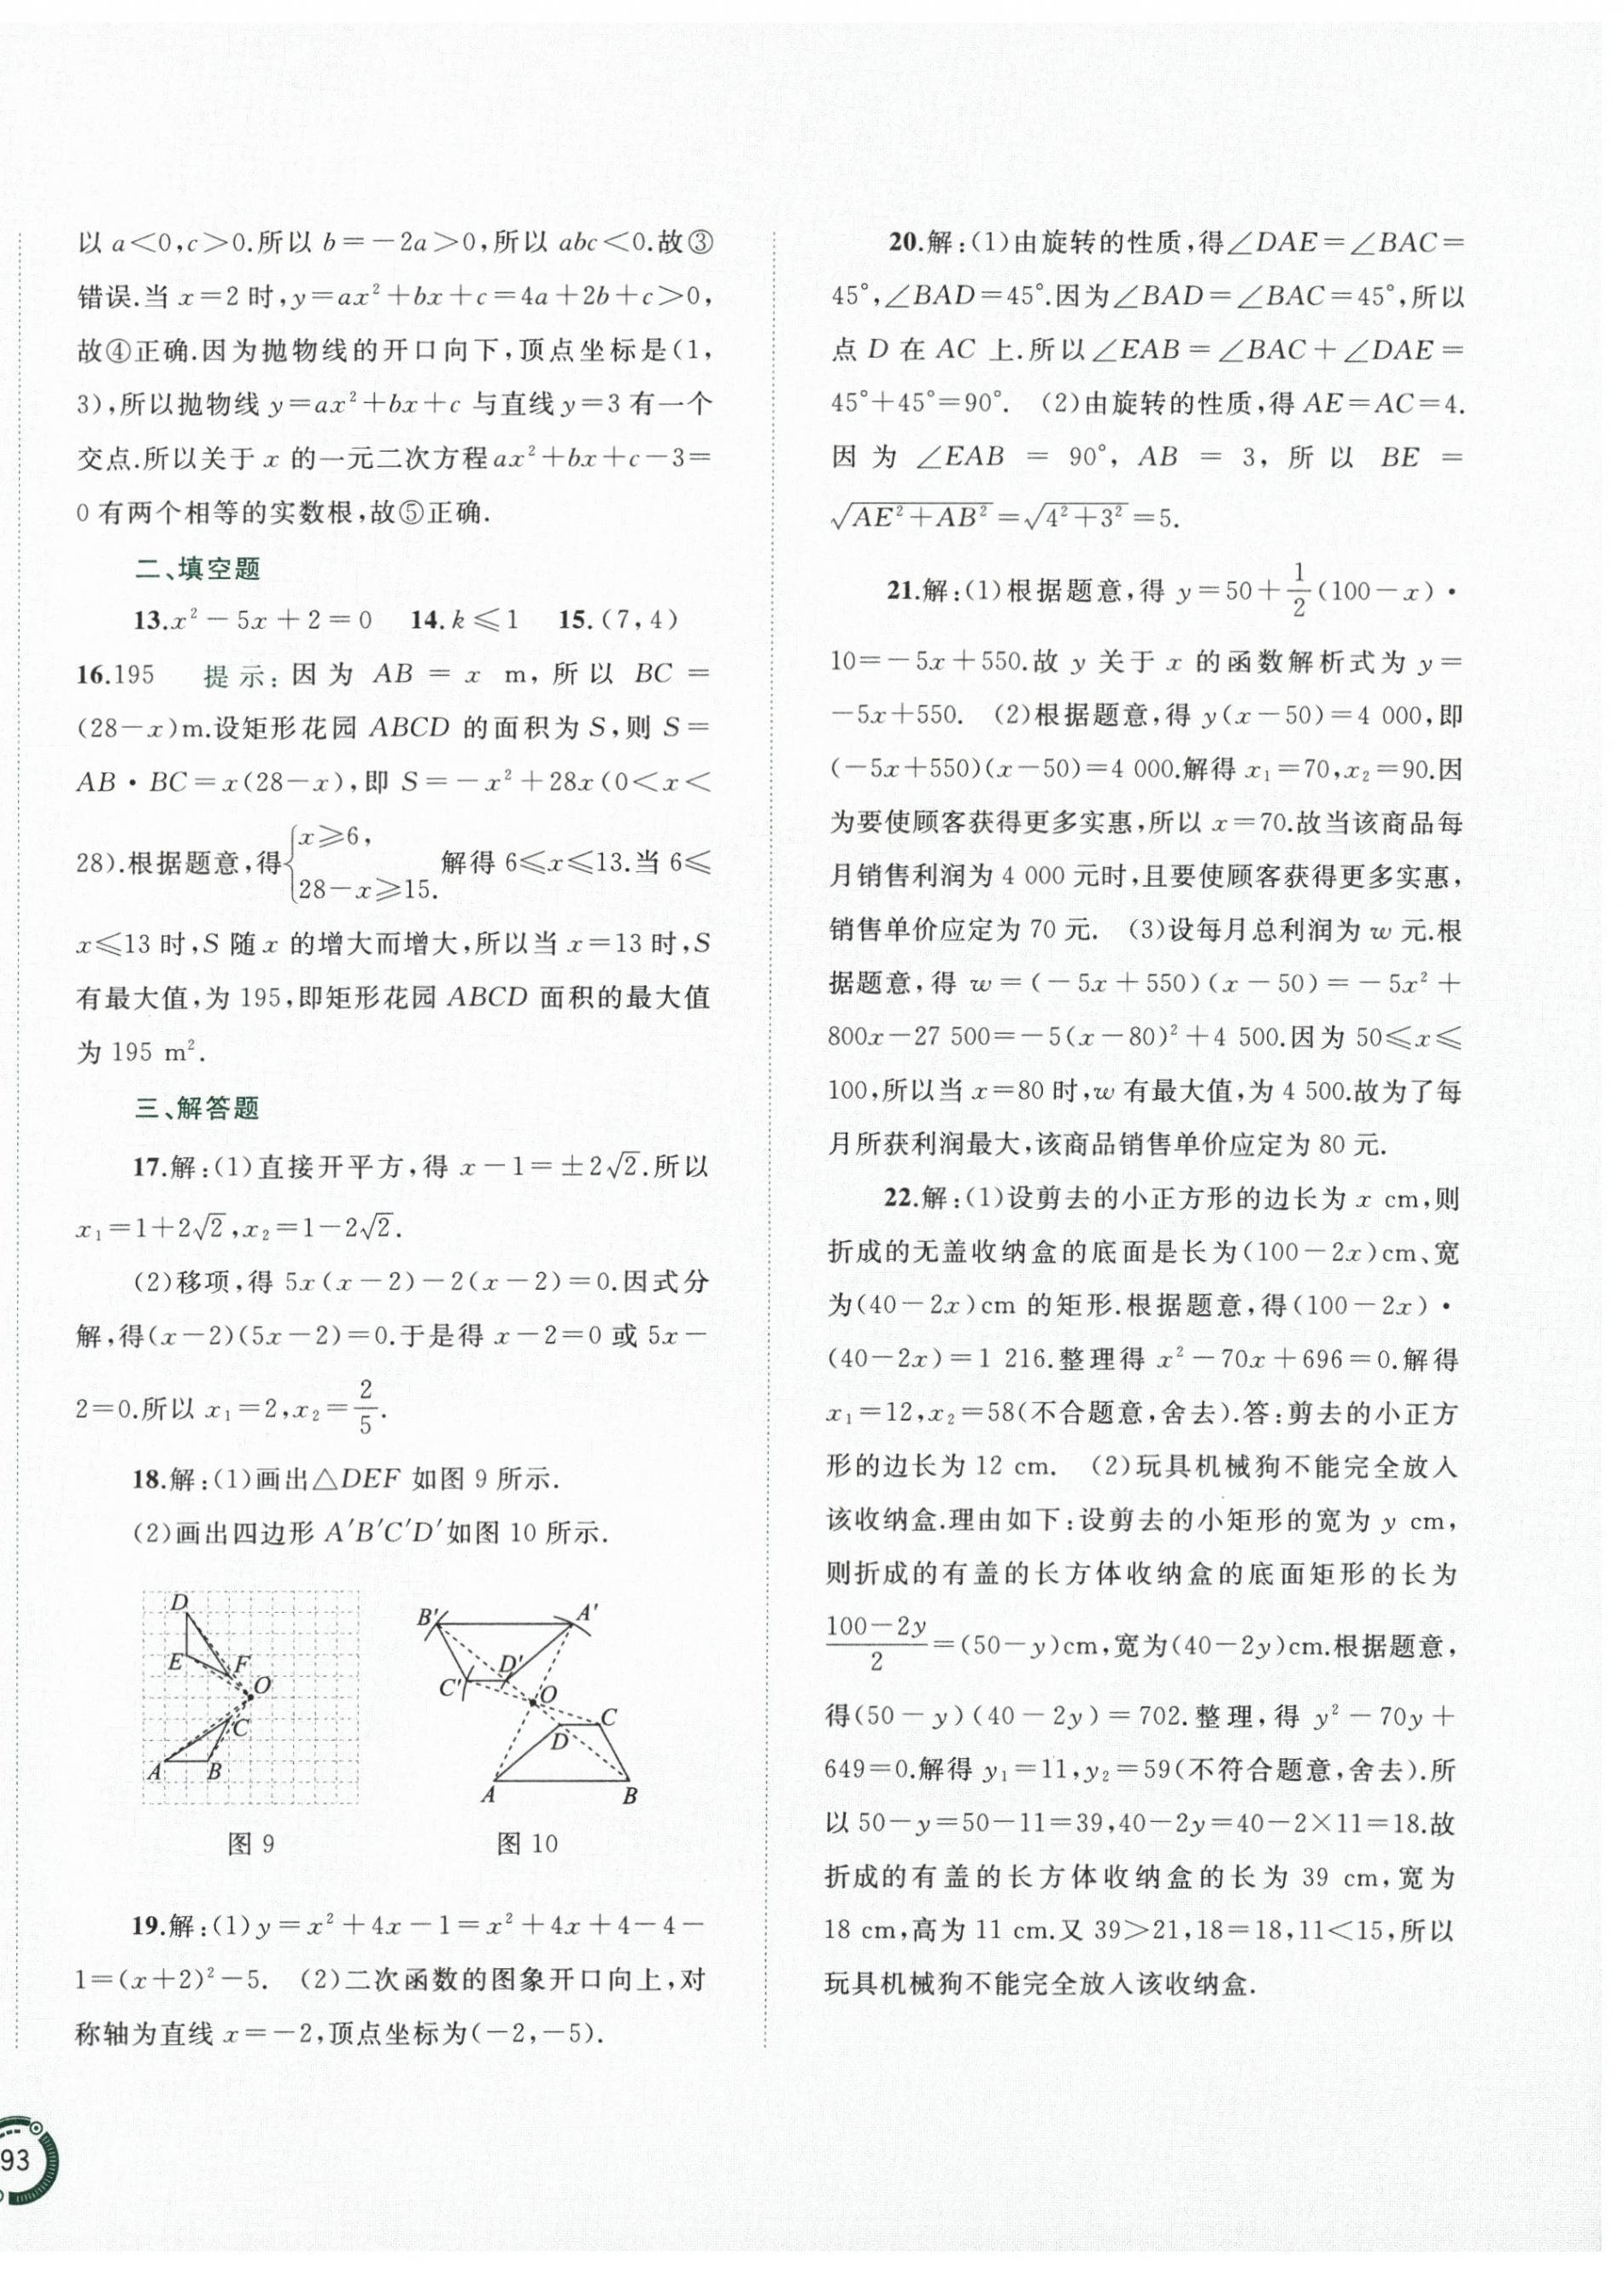 以 a<0,c>0.所以 b=-2a>0,所以 abc<0.故③
错误.当 x=2 时,y=ax²+bx+c=4a+2b+c>0,
故④正确.因为抛物线的开口向下,顶点坐标是(1,
3),所以抛物线 y=ax²+bx+c 与直线 y=3 有一个
交点.所以关于 x 的一元二次方程 ax²+bx+c-3=
0 有两个相等的实数根,故⑤正确.
二、填空题
13.x²-5x+2=0 14.k⩽1 15.(7,4)
16.195 提示:因为 AB=x m,所以 BC=
(28-x)m.设矩形花园 ABCD 的面积为 S,则 S=
AB·BC=x(28-x),即 S=-x²+28x(0<x<
28).根据题意,得{x⩾6, 28-x⩾15. 解得 6⩽x⩽13.当 6⩽
x⩽13 时,S 随 x 的增大而增大,所以当 x=13 时,S
有最大值,为 195,即矩形花园 ABCD 面积的最大值
为 195 m².
三、解答题
17.解:(1)直接开平方,得 x-1=±2√2.所以
x₁=1+2√2,x₂=1-2√2.
(2)移项,得 5x(x-2)-2(x-2)=0.因式分
解,得(x-2)(5x-2)=0.于是得 x-2=0 或 5x-
2=0.所以 x₁=2,x₂=2/5.
18.解:(1)画出△DEF 如图 9 所示.
(2)画出四边形 A′B′C′D′如图 10 所示.
D
E F
O
C
A B
B′ A′
D′
C′
O
C
D
A B
图 9 图 10
19.解:(1)y=x²+4x-1=x²+4x+4-4-
1=(x+2)²-5. (2)二次函数的图象开口向上,对
称轴为直线 x=-2,顶点坐标为(-2,-5).
93
20.解:(1)由旋转的性质,得∠DAE=∠BAC=
45°,∠BAD=45°.因为∠BAD=∠BAC=45°,所以
点 D 在 AC 上.所以∠EAB=∠BAC+∠DAE=
45°+45°=90°. (2)由旋转的性质,得 AE=AC=4.
因为 ∠EAB = 90°, AB = 3, 所以 BE =
√(AE²+AB²)=√(4²+3²)=5.
21.解:(1)根据题意,得 y=50+1/2(100-x)·
10=-5x+550.故 y 关于 x 的函数解析式为 y=
-5x+550. (2)根据题意,得 y(x-50)=4 000,即
(-5x+550)(x-50)=4 000.解得 x₁=70,x₂=90.因
为要使顾客获得更多实惠,所以 x=70.故当该商品每
月销售利润为 4 000 元时,且要使顾客获得更多实惠,
销售单价应定为 70 元. (3)设每月总利润为 w 元.根
据题意,得 w=(-5x+550)(x-50)=-5x²+
800x-27 500=-5(x-80)²+4 500.因为 50⩽x⩽
100,所以当 x=80 时,w 有最大值,为 4 500.故为了每
月所获利润最大,该商品销售单价应定为 80 元.
22.解:(1)设剪去的小正方形的边长为 x cm,则
折成的无盖收纳盒的底面是长为(100-2x)cm、宽
为(40-2x)cm 的矩形.根据题意,得(100-2x)·
(40-2x)=1 216.整理得 x²-70x+696=0.解得
x₁=12,x₂=58(不合题意,舍去).答:剪去的小正方
形的边长为 12 cm. (2)玩具机械狗不能完全放入
该收纳盒.理由如下:设剪去的小矩形的宽为 y cm,
则折成的有盖的长方体收纳盒的底面矩形的长为
(100-2y)/2=(50-y)cm,宽为(40-2y)cm.根据题意,
得(50-y)(40-2y)=702.整理,得 y²-70y+
649=0.解得 y₁=11,y₂=59(不符合题意,舍去).所
以 50-y=50-11=39,40-2y=40-2×11=18.故
折成的有盖的长方体收纳盒的长为 39 cm,宽为
18 cm,高为 11 cm.又 39>21,18=18,11<15,所以
玩具机械狗不能完全放入该收纳盒.